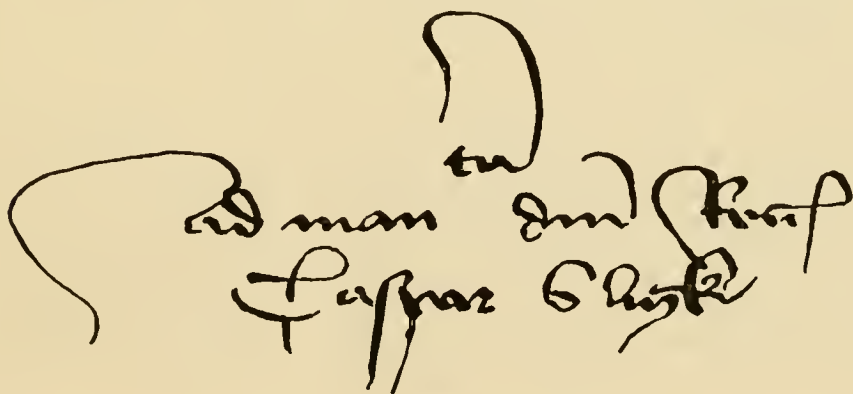 Ad man dni Regis
Caspar Sligk